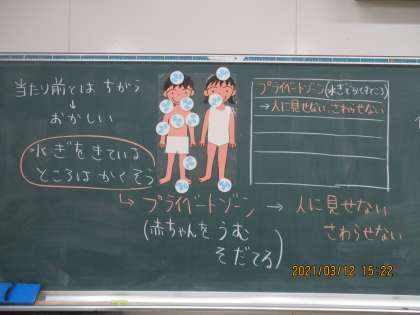 当たり前とは ちがう
↓
おかしい
水ぎをきている
ところは かくそう
プライベートゾーン(水ぎでかくすところ)
→人に見せない、さわらせない
↳ プライベートゾーン → 人に見せない
さわらせない
(赤ちゃんをうむ
そだてる)
2021/03/12 15:22